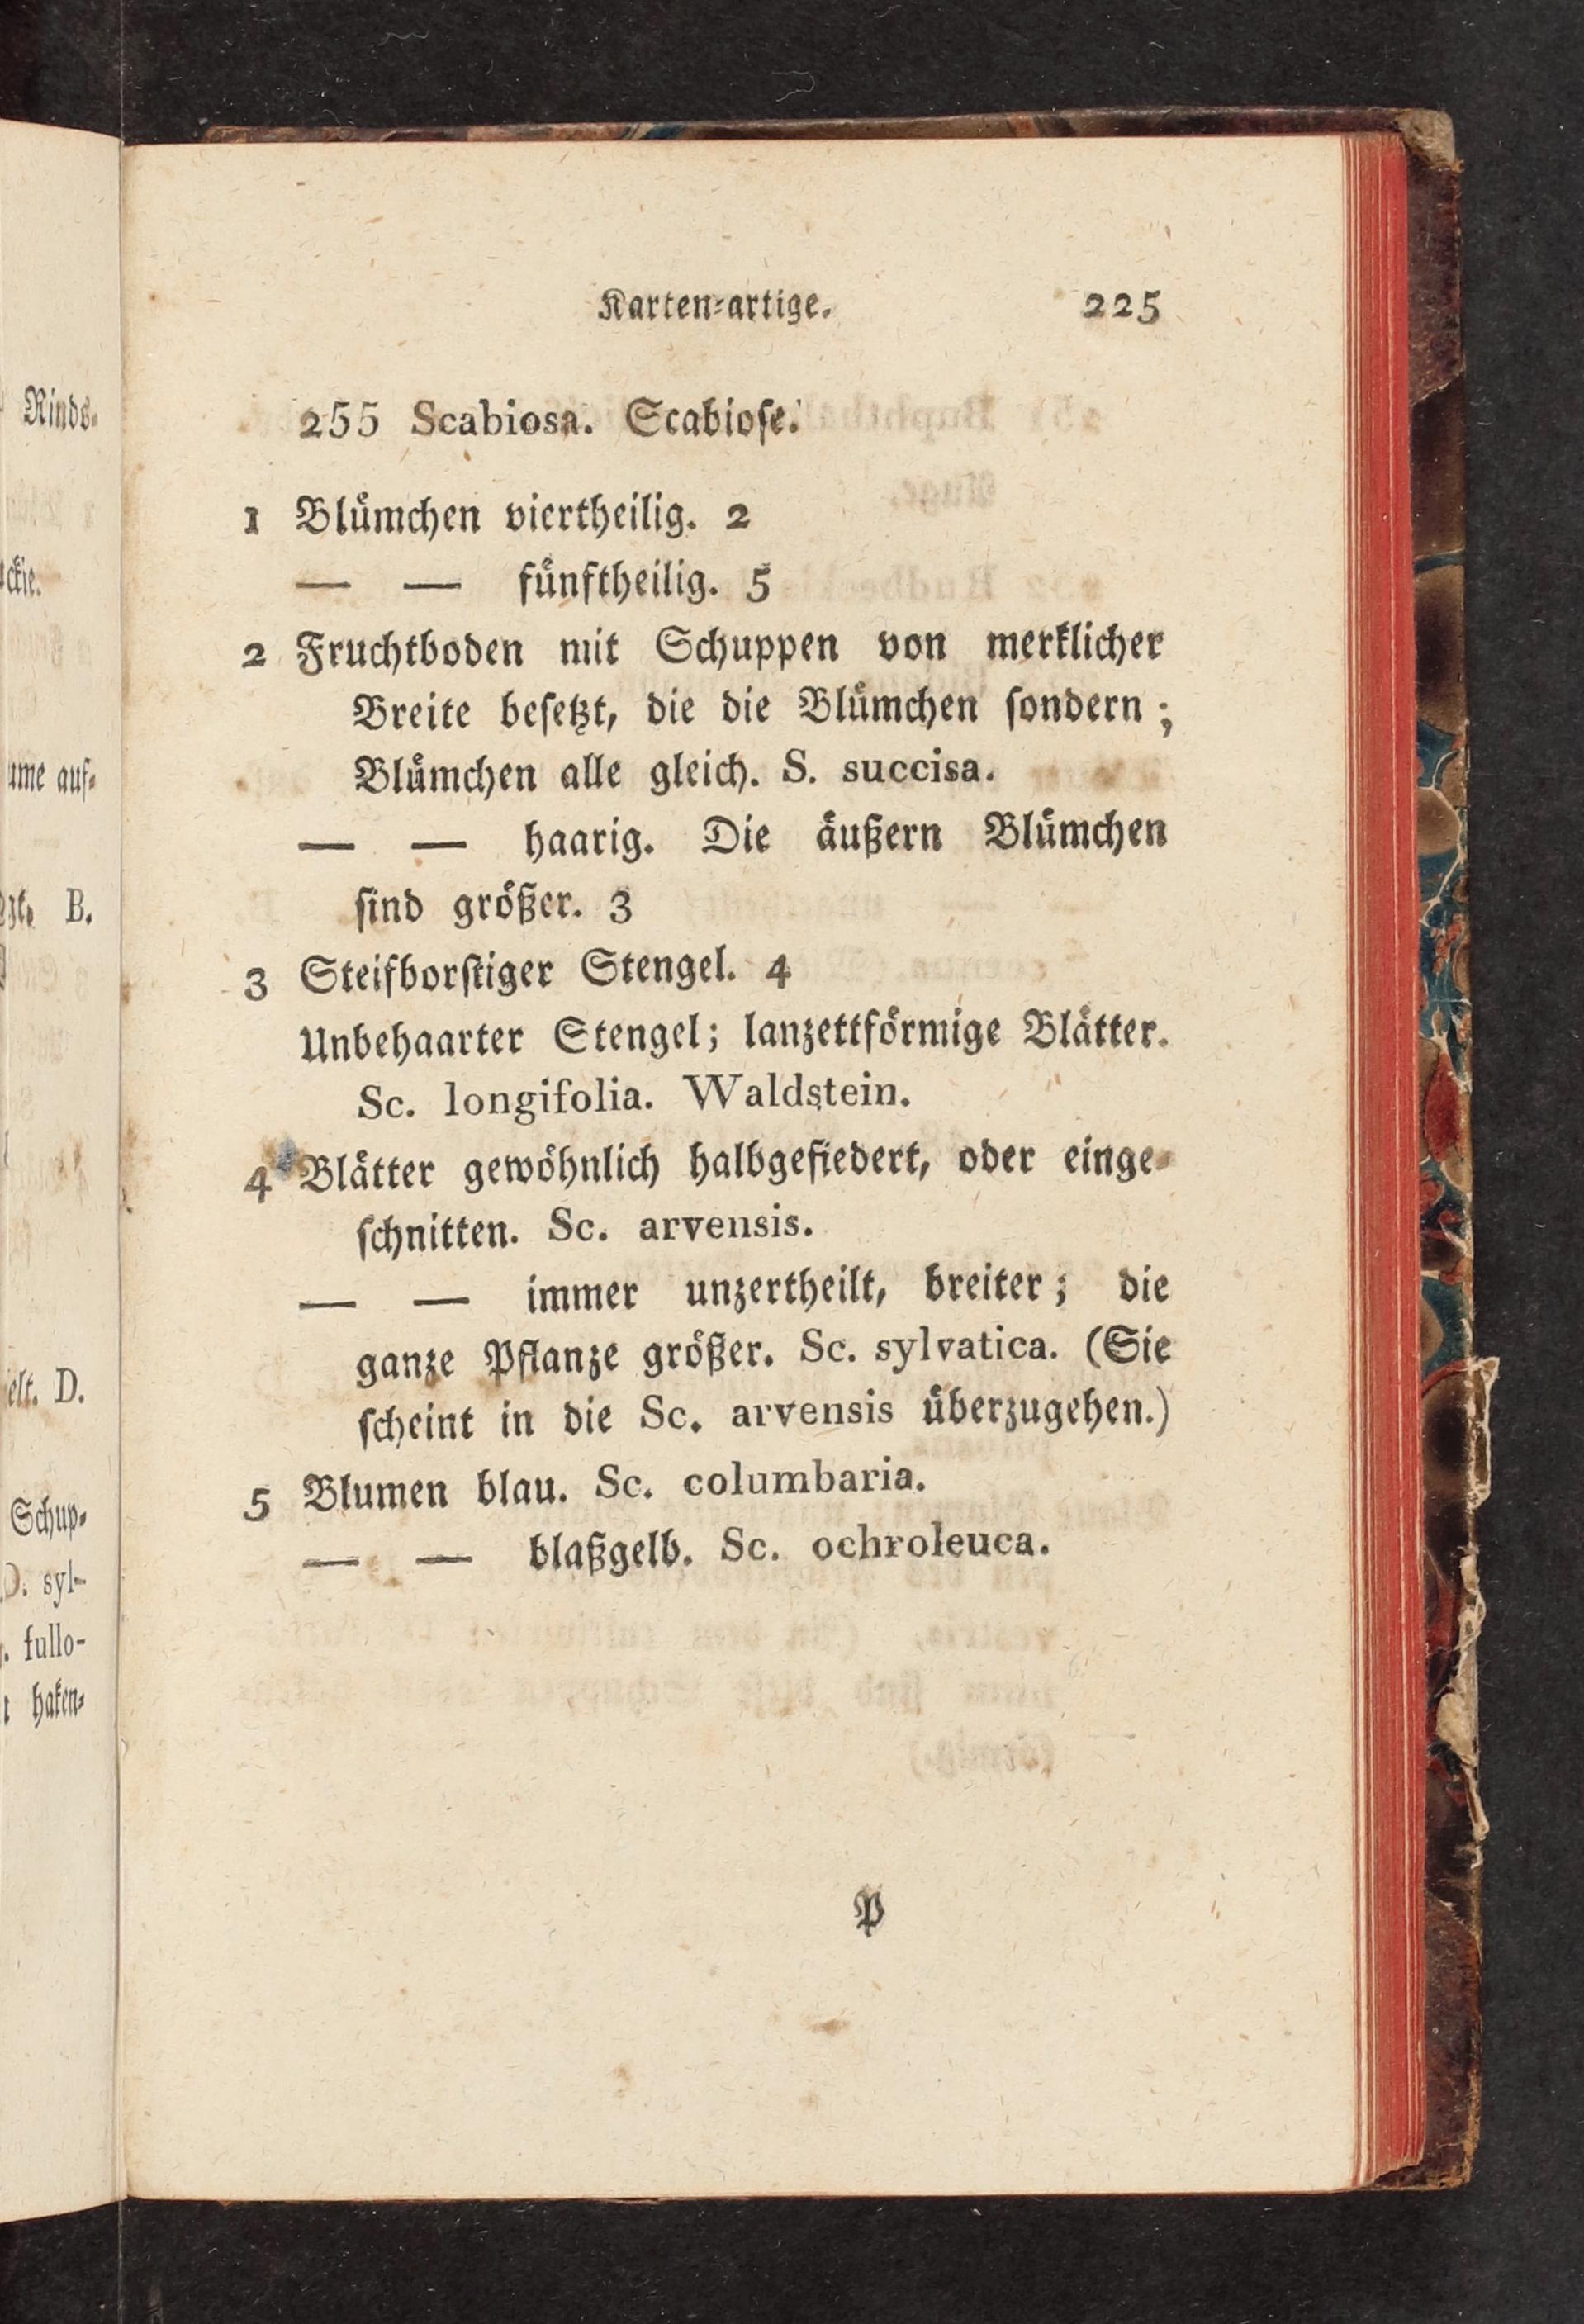 Karten-artige. 225
255 Scabiosa. Scabioſe.
1 Blümchen viertheilig. 2
— — fünftheilig. 5
2 Fruchtboden mit Schuppen von merklicher
Breite beſetzt, die die Blümchen ſondern;
Blümchen alle gleich. S. succisa.
— — haarig. Die äußern Blümchen
ſind größer. 3
3 Steifborſtiger Stengel. 4
Unbehaarter Stengel; lanzettförmige Blätter.
Sc. longifolia. Waldstein.
4 Blätter gewöhnlich halbgefiedert, oder einge-
ſchnitten. Sc. arvensis.
— — immer unzertheilt, breiter; die
ganze Pflanze größer. Sc. sylvatica. (Sie
ſcheint in die Sc. arvensis überzugehen.)
5 Blumen blau. Sc. columbaria.
— — blaßgelb. Sc. ochroleuca.
P
Rinds-
auf-
B.
D.
Schup-
syl-
fullo-
haken-